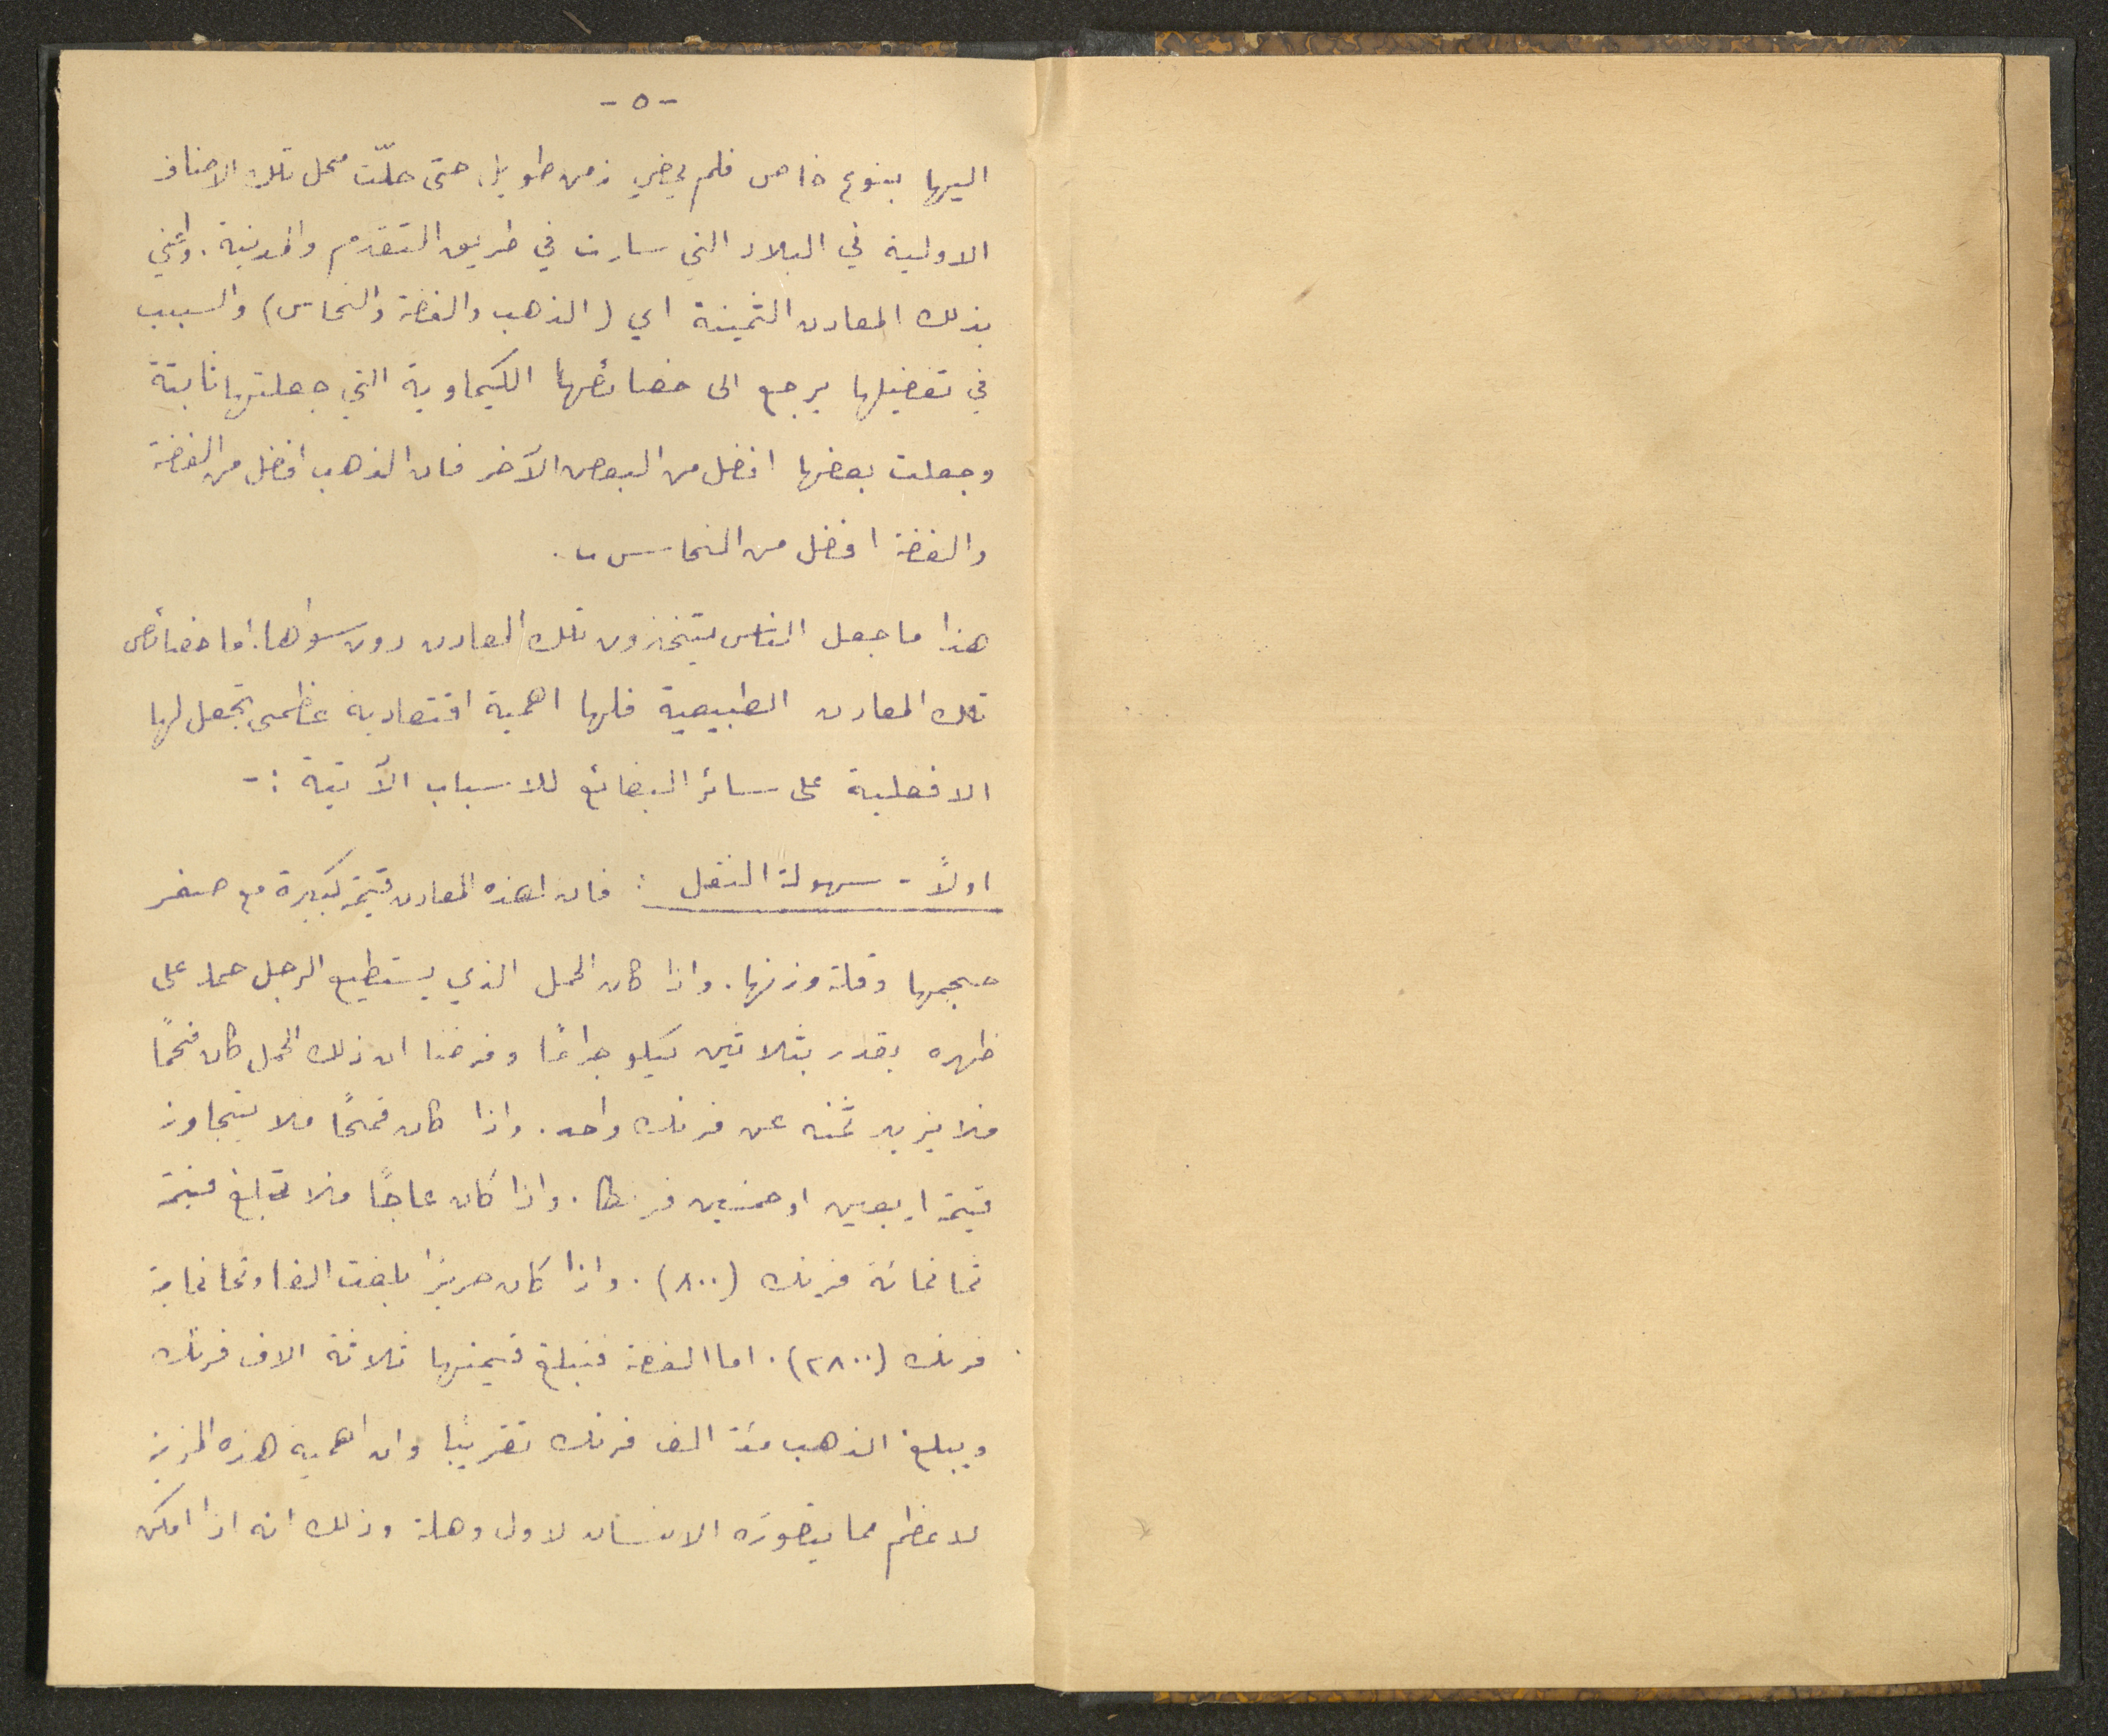 - ٥ -
اليها بنوع خاص فلم يمضي زمن طويل حتى حلّت محل تلك الاصناف
الاولية في البلاد التي سارت في طريق التقدم والمدنية. واعني
بذلك المعادن الثمينة اي (الذهب والفضة والنحاس) والسبب
في تفضيلها يرجع الى خصائصها الكيماوية التي جعلتها ثابتة
وجعلت بعضها افضل من البعض الآخر فان الذهب افضل من الفضة
والفضة افضل من النحاس.
هذا ما جعل الناس يتخذون تلك المعادن دون سواها. اما خصائص
تلك المعادن الطبيعية فلها اهمية اقتصادية عظمى تجعل لها
الافضلية على سائر البضائع للاسباب الآتية :-
اولاً - سهولة النقل : فان لهذه المعادن قيمة كبيرة مع صغر
حجمها وقلة وزنها. واذا كان الحمل الذي يستطيع الرجل حمله على
ظهره يقدر بثلاثين كيلو جرامًا وفرضنا ان ذلك الحمل كان فحمًا
فلا يزيد ثمنه عن فرنك واحد. واذا كان قمحًا فلا يتجاوز
قيمة اربعين او خمسين فرنكا. واذا كان عاجًا فلا تبلغ قيمة
ثمانمائة فرنك (٨٠٠). واذا كان حريرا بلغت الفا وثمانماية
فرنك (٢٨٠٠). اما الفضة فتبلغ قيمتها ثلاثة الاف فرنك
ويبلغ الذهب مئة الف فرنك تقريبًا وان اهمية هذه المزية
لاعظم مما يتصوره الانسان لاول وهلة وذلك انه اذا امكن